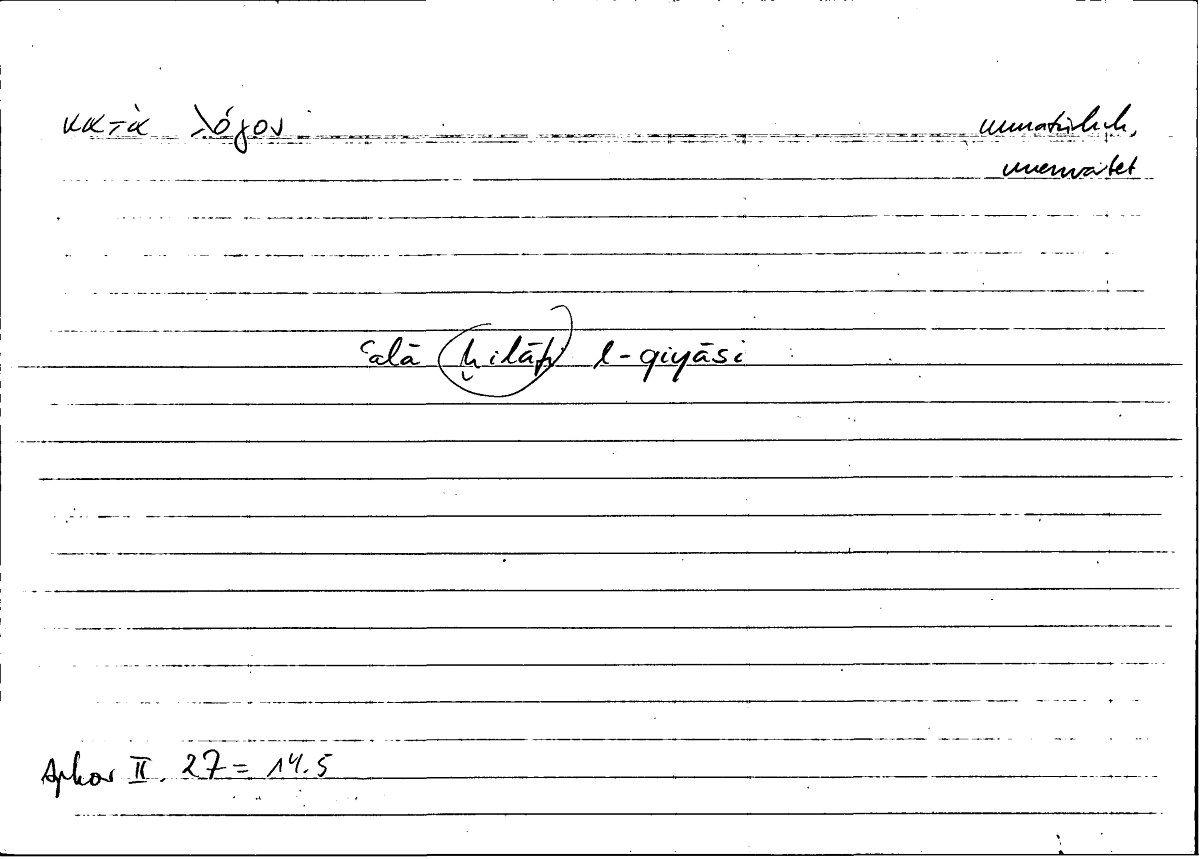 κατὰ λόγον unnatürlich,
unerwartet
ʿalā ḫilāfi l-qiyāsi
Aphor II. 27 = 14.5